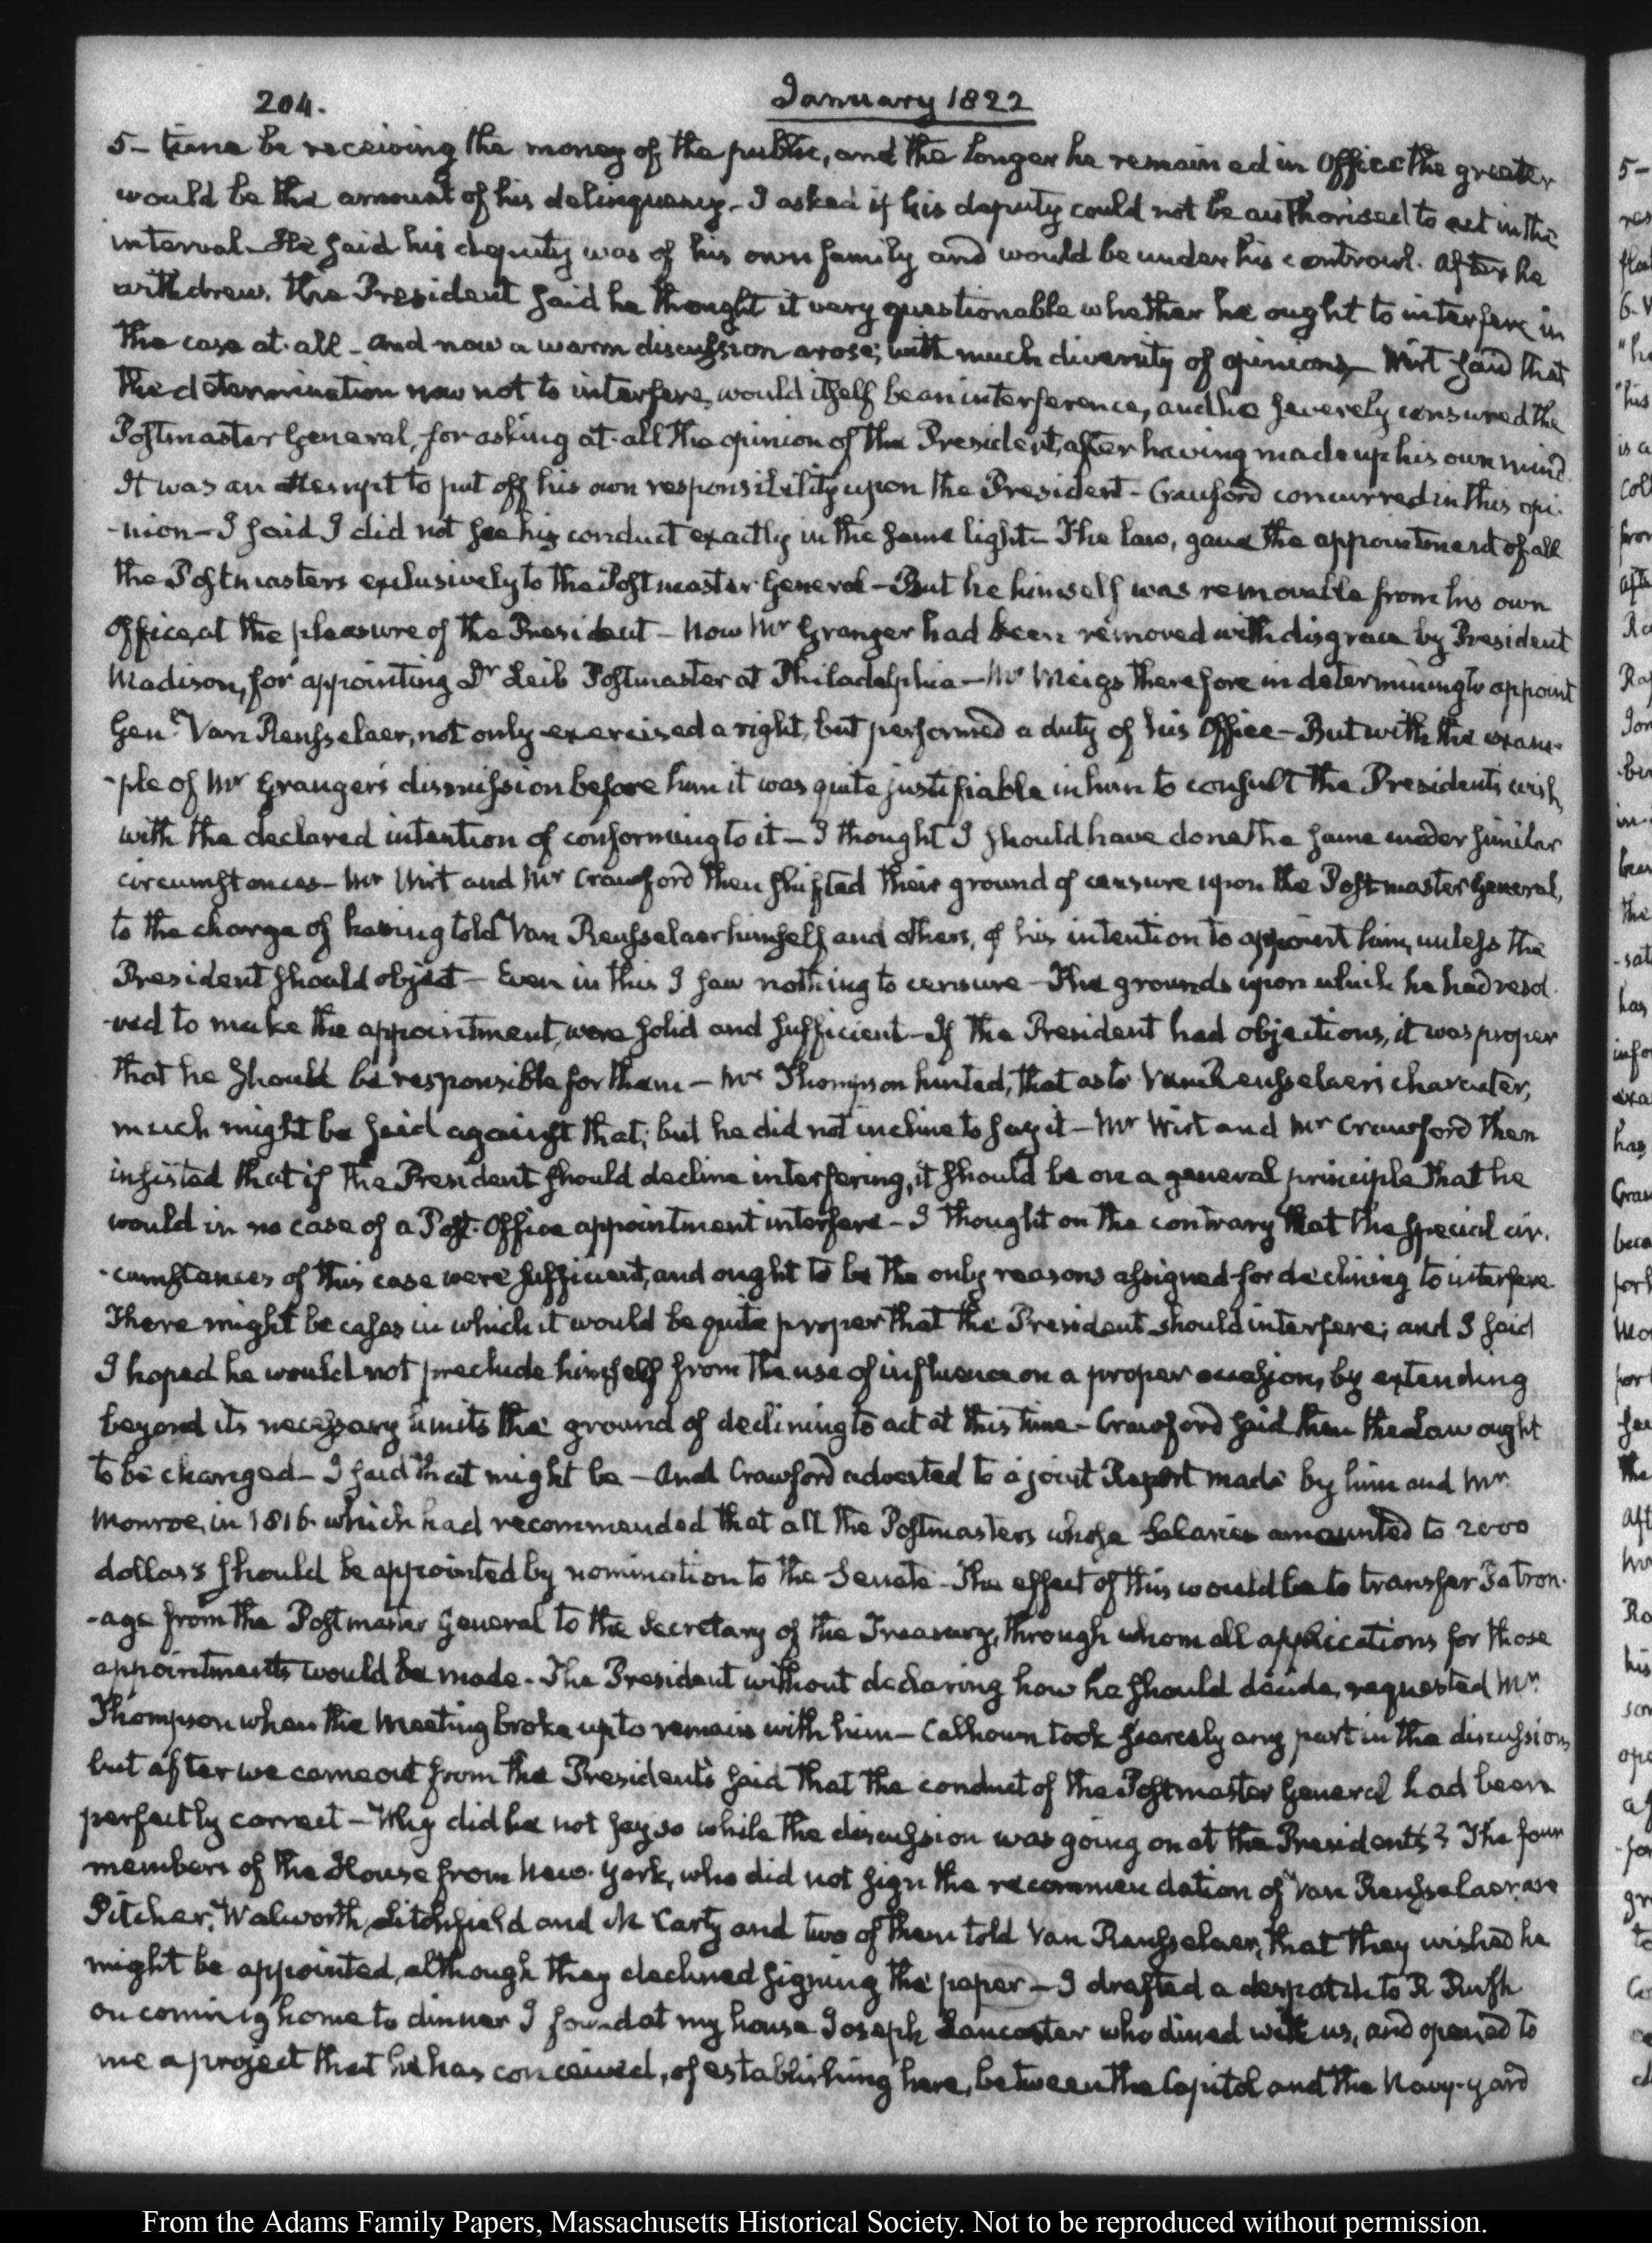 204. January 1822
5- time be receiving the money of the public, and the longer he remained in Office the greater
would be the amount of his delinquency - I asked if his deputy could not be authorised to act in the
interval - He said his deputy was of his own family and would be under his controul. After he
withdrew, the President said he thought it very questionable whether he ought to interfere in
the case at all - and now a warm discussion arose; with much diversity of opinions - Wirt said that
the determination now not to interfere, would itself be an interference, and he severely censured the
Postmaster General, for asking at all the opinion of the President, after having made up his own mind.
It was an attempt to put off his own responsibility upon the President - Crawford concurred in this opi-
-nion - I said I did not see his conduct exactly in the same light - The law, gave the appointment of all
the Postmasters exclusively to the Postmaster General - But he himself was removable from his own
Office, at the pleasure of the President - Now Mr Granger had been removed with disgrace by President
Madison, for appointing Dr Leib Postmaster at Philadelphia - Mr Meigs therefore in determining to appoint
Genl. Van Rensselaer, not only exercised a right, but performed a duty of his Office - But with the exam-
-ple of Mr Granger's dismission before him it was quite justifiable in him to consult the President's wish,
with the declared intention of conforming to it - I thought I should have done the same under similar
circumstances - Mr Wirt and Mr Crawford then shifted their ground of censure upon the Postmaster General,
to the charge of having told Van Rensselaer himself and others, of his intention to appoint him, unless the
President should object - Even in this I saw nothing to censure - The grounds upon which he had resol-
-ved to make the appointment, were solid and sufficient - If the President had objections, it was proper
that he should be responsible for them - Mr Thompson hinted, that as to Van Rensselaer's character,
much might be said against that; but he did not incline to say it - Mr Wirt and Mr Crawford then
insisted that if the President should decline interfering, it should be on a general principle that he
would in no case of a Post-Office appointment interfere - I thought on the contrary that the special cir-
-cumstances of this case were sufficient, and ought to be the only reasons assigned for declining to interfere.
There might be cases in which it would be quite proper that the President should interfere; and I said
I hoped he would not preclude himself from the use of influence on a proper occasion, by extending
beyond its necessary limits the ground of declining to act at this time - Crawford said then the Law ought
to be changed - I said that might be - And Crawford adverted to a joint Report made by him and Mr
Monroe, in 1816. which had recommended that all the Postmasters whose Salaries amounted to 2000
dollars should be appointed by nomination to the Senate - The effect of this would be to transfer Patron-
-age from the Postmaster General to the Secretary of the Treasury, through whom all applications for those
appointments would be made. The President without declaring how he should decide, requested Mr
Thompson when the Meeting broke up to remain with him - Calhoun took scarcely any part in the discussion,
but after we came out from the President's said that the conduct of the Postmaster General had been
perfectly correct - Why did he not say so while the discussion was going on at the President's? The four
members of the House from New-York, who did not sign the recommendation of Van Rensselaer, are
Pitcher, Walworth, Litchfield and McCarty and two of them told Van Rensselaer, that they wished he
might be appointed, although they declined signing the paper - I drafted a despatch to R Rush
on coming home to dinner I found at my house Joseph Lancaster who dined with us, and opened to
me a project that he has conceived, of establishing here, between the Capitol and the Navy-yard
From the Adams Family Papers, Massachusetts Historical Society. Not to be reproduced without permission.